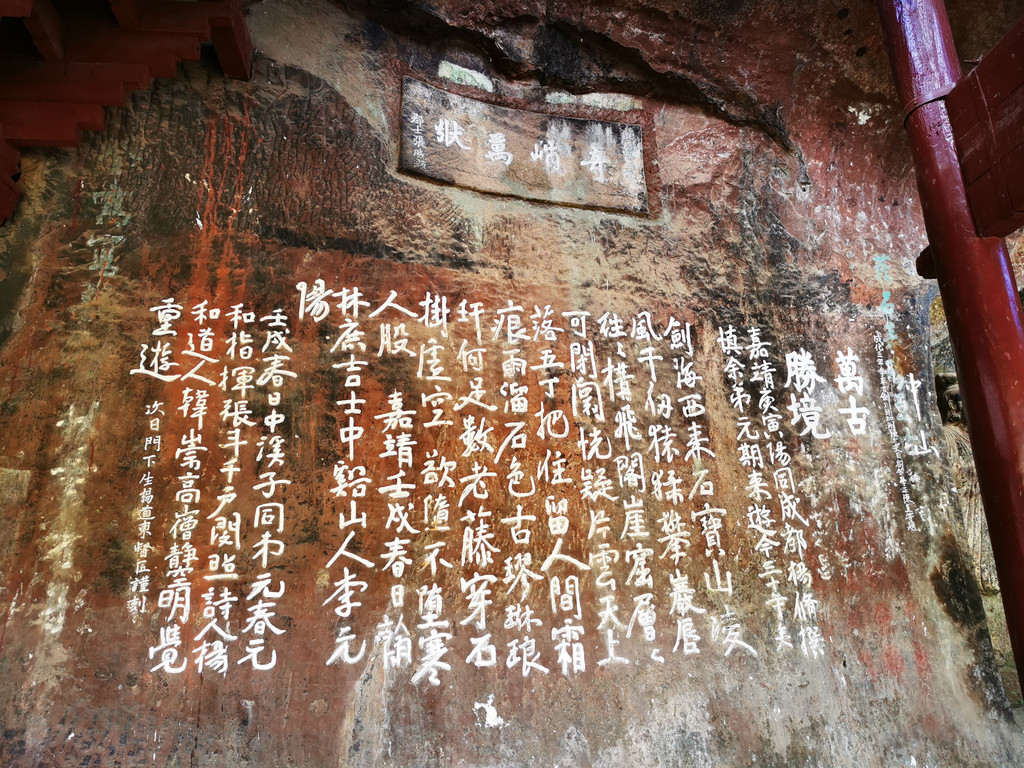 奇峭萬狀
萬古
勝境
嘉靖庚寅陽同成都楊脩撰
慎余弟元期來遊今三十年矣
劍海西来石寶山凌
風千仞猿猱攀巖唇
往々構飛閣崖窟層々
可閉關恍疑片雲天上
落五丁把住留人間霜
痕雨溜石色古璆琳琅
玕何足數老藤穿石
掛虛空欲隨不堕寒
人股 嘉靖壬戌春日翰
林庶吉士中谿山人李元
陽
壬戌春日中溪子同弟元春元
和指揮張斗千戶閔照詩人楊
和道人韓崇高僧静明覺
重遊
次日門下生楊道東醫臣謹刻